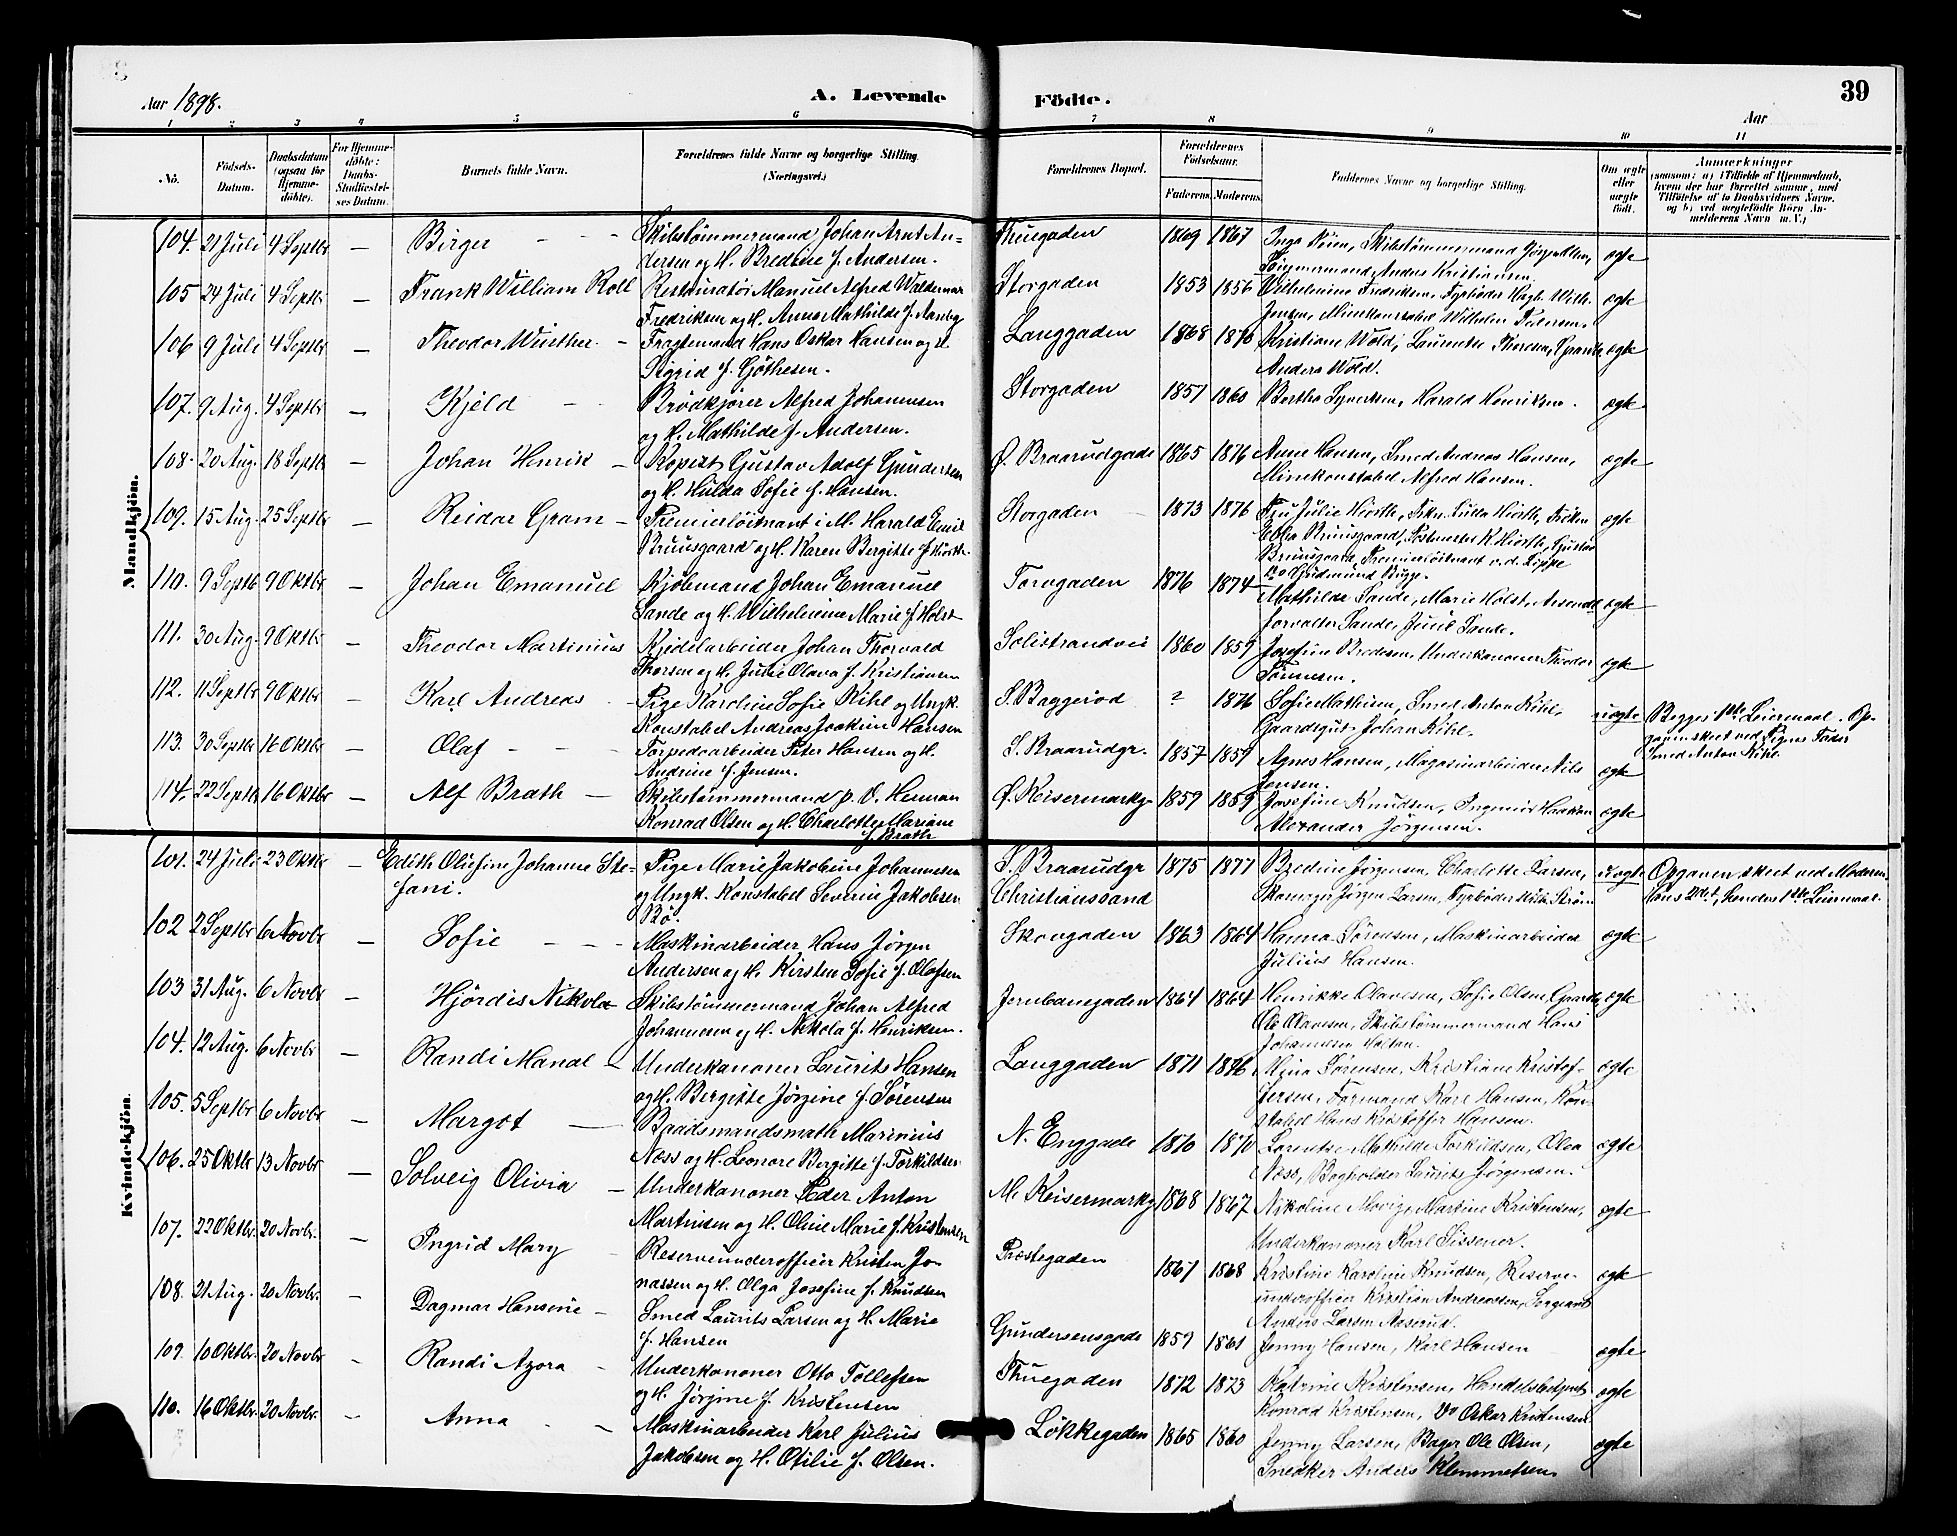 Aar 1898.
A. Levende
Födte.
39
Aar
1 2 3 4 5 6 7 8 9 10 11
No.
Födsels-Datum.
Daabsdatum (ogsaa for Hjemmedöbte).
For Hjemmedöbte: Daabs-Stadfæstelses Datum.
Barnets fulde Navn.
Forældrenes fulde Navne og borgerlige Stilling. (Næringsvei.)
Forældrenes Bopæl.
Forældrenes Födselsaar.
Faderens Moderens
Faddernes Navne og borgerlige Stilling.
Om ægte eller uægte födt.
Anmærkninger
(saasom: a) i Tilfælde af Hjemmedaab, hvem der har forrettet samme, med Tilföielse af to Daabsvidners Navne, og b) ved uægtefödte Börn Anmelderens Navn m. V.)
Mandkjön.
104. 21 Juli 4 Septbr — Birger - - - Skibstømmermand Johan Arnt An-
dersen og H. Bredine f. Andersen. Thuegaden 1869 1867 Skibstømmermand
Tømmermand Anders Kristiansen. ægte
105 24 Juli 4 Septbr — Frank William Roll Restauratør Manuel Alfred Waldemar
Fredriksen og H. Anna Mathilde f. Storgaden 1853 1856 Wilhelmine Fredriksen, Fyrbøder
Jensen, Minekonstabel Wilhelm Pedersen. ægte
106 9 Juli 4 Septbr — Theodor - Fragtemand Hans Oskar Hansen og H.
Sigrid f. Göthesen. Langgaden 1868 1870 Kristiane Wold, Laurentse Thoresen,
Anders Wold. ægte
107. 9 Aug. 4 Septbr — Kjeld - - Brödkjörer Alfred Johannesen
og H. Mathilde f. Andersen. Storgaden 1857 1860 Bertha Syvertsen, Harald Henriksen. ægte
108. 20 Aug. 18 Septbr — Johan Henrik — Kopist Gustav Adolf Gundersen
og H. Hulda Sofie f. Hansen. Ø. Braarudgade 1865 1876 Anne Hansen, Smed Andreas Hansen,
Minekonstabel Alfred Hansen. ægte
109. 15 Aug. 25 Septbr — Reidar Gram — Premierlöitnant i M. Harald Emil
Bruusgaard og H. Karen Bergitte f. Hiorth. Storgaden 1873 1876 Fru Julie Hiorth, Frkn. Lulla Hiorth, Fröken
Ebba Bruusgaard, Postmester K. Hiorth, Gustav
Bruusgaard, Premierlöitnant v. d. Lippe
Do Gudmund Bugge. ægte
110. 9 Septbr 9 Oktbr — Johan Emanuel Kjölmand Johan Emanuel
Sande og H. Wilhelmine Marie f. Holst Torvgaden 1876 1874 Mathilde Sande, Marie Holst, Arsenal-
forvalter Sande, Sande. ægte
111. 30 Aug. 9 Oktbr — Theodor Martinius Kjedelarbeider Johan Thorvald
Thorsen og H. Julie Olava f. Kristiansen Solistrandvei 1860 1859 Josefine Bredesen, Underkanoner Theodor
Tönnesen. ægte
112. 11 Septbr 9 Oktbr — Karl Andreas - Pige Karoline Sofie Kihl og Ungk.
Konstabel Andreas Joakim Hansen S. Baggeröd ? 1876 Sofie Mathisen, Smed Anton Kihl,
Gaardsgut Johan Kihl. uægte Begges 1ste Leiermaal. Op-
gaven skeet ved Pigens Fader
Smed Anton Kihl.
113. 30 Septbr 16 Oktbr — Olaf - - - Torpedoarbeider Peter Hansen og H.
Andrine f. Jensen. S. Braarudgr. 1857 1859 Agnes Hansen, Magasinarbeider Nils
Jensen. ægte
114. 22 Septbr 16 Oktbr — Alf Brath — Skibstømmermand p. O. Herman
Konrad Olsen og H. Charlotte Mariane
f. Brath Ø. Keisermarkg 1859 1859 Josefine Knudsen, Haakon
Alexander Jörgensen. ægte
Kvindekjön.
101. 24 Juli 23 Oktbr — Edith Olufine Johanne Ste-
fani. Pige Marie Jakobine Johannesen
og Ungk. Konstabel Severin Jakobsen
Bö. S. Braarudgr
Christianssand 1875 1877 Bredine Jörgensen, Charlotte Larsen,
Skomager Jörgen Larsen, Fyrböder uægte Opgaven skeet ved Moderen.
Hans 2det, hendes 1ste Leiermaal.
102 2 Septbr 6 Novbr — Sofie - - - Maskinarbeider Hans Jörgen
Andersen og H. Kirsten Sofie f. Olafsen Skovgaden 1863 1864 Hanna Sörensen, Maskinarbeider
Julius Hansen. ægte
103 31 Aug. 6 Novbr — Hjördis Nikola Skibstømmermand Johan Alfred
Johannesen og H. Nikola f. Henriksen. Jernbanegaden 1864 1864 Henrikke Olavesen, Sofie Olsen,
Ole Olavesen, Skibstømmermand Hans
Johannesen Holtan. ægte
104. 12 Aug. 6 Novbr — Randi Mandl — Underkanoner Laurits Hansen
og H. Bergitte Jörgine f. Sörensen Langgaden 1871 1876 Mina Sörensen, Kristiane Kristof-
fersen, Formand Karl Hansen, Kon-
stabel Hans Kristoffer Hansen. ægte
105. 5 Septbr 6 Novbr — Margot — Baadsmandsmath Marinius
Næss og H. Leonore Bergitte f. Torkildsen N. Enggade 1870 1870 Lorentse Mathilde Torkildsen, Olea
Næss, Bogholder Laurits Jörgensen. ægte
106. 25 Oktbr 13 Novbr — Solveig Olivia — Underkanoner Peder Anton
Martinsen og H. Oline Marie f. Kristensen M. Keisermarkg 1868 1867 Nikoline Movig, Martine Kristensen,
Underkanoner Karl Sissener. ægte
107. 22 Oktbr. 20 Novbr. — Ingrid Mary - Reserveunderofficer Kristen Jo-
nassen og H. Olga Josefine f. Knudsen Præstegaden 1867 1868 Kristine Karoline Knudsen, Reserve-
underofficer Kristian Andreassen, Sergeant
Anders Larsen Aaserud. ægte
108. 21 Aug. 20 Novbr. — Dagmar Hansine — Smed Laurits Larsen og H. Marie
f. Hansen Gundersensgade 1859 1861 Jenny Hansen, Karl Hansen ægte
109. 10 Oktbr. 20 Novbr — Randi Azora - Underkanoner Otto Tollefsen
og H. Jörgine f. Kristensen Thuegaden 1872 1873 Katrine Kristensen, Handelsbetjent
Konrad Kristensen, Do Oskar Kristensen ægte
110. 16 Oktbr. 20 Novbr. — Anna - - Maskinarbeider Karl Julius
Jakobsen og H. Otilie f. Olsen. Lökkegaden 1865 1860 Jenny Larsen, Bager Ole Olsen,
Snedker Anders Klemmetsen. ægte